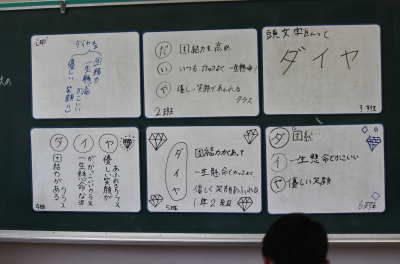 1班
ダイヤな
団結力
一生懸命
かっこいい
優しい笑顔
だ 団結力を高め
い いつもかっこよく一生懸命!
や 優しい笑顔であふれる
クラス
2班
頭文字とって
ダイヤ
3班
ダ イ ヤ
あふれるクラス
優しい笑顔が
かっこいいクラス
一生懸命な姿が
団結力がある
4班
ダイヤ
団結力があって
一生懸命でかっこよく、
優しく笑顔あふれる
1年2組
5班
ダ 団結
イ 一生懸命でかっこいい
ヤ 優しい笑顔
6班